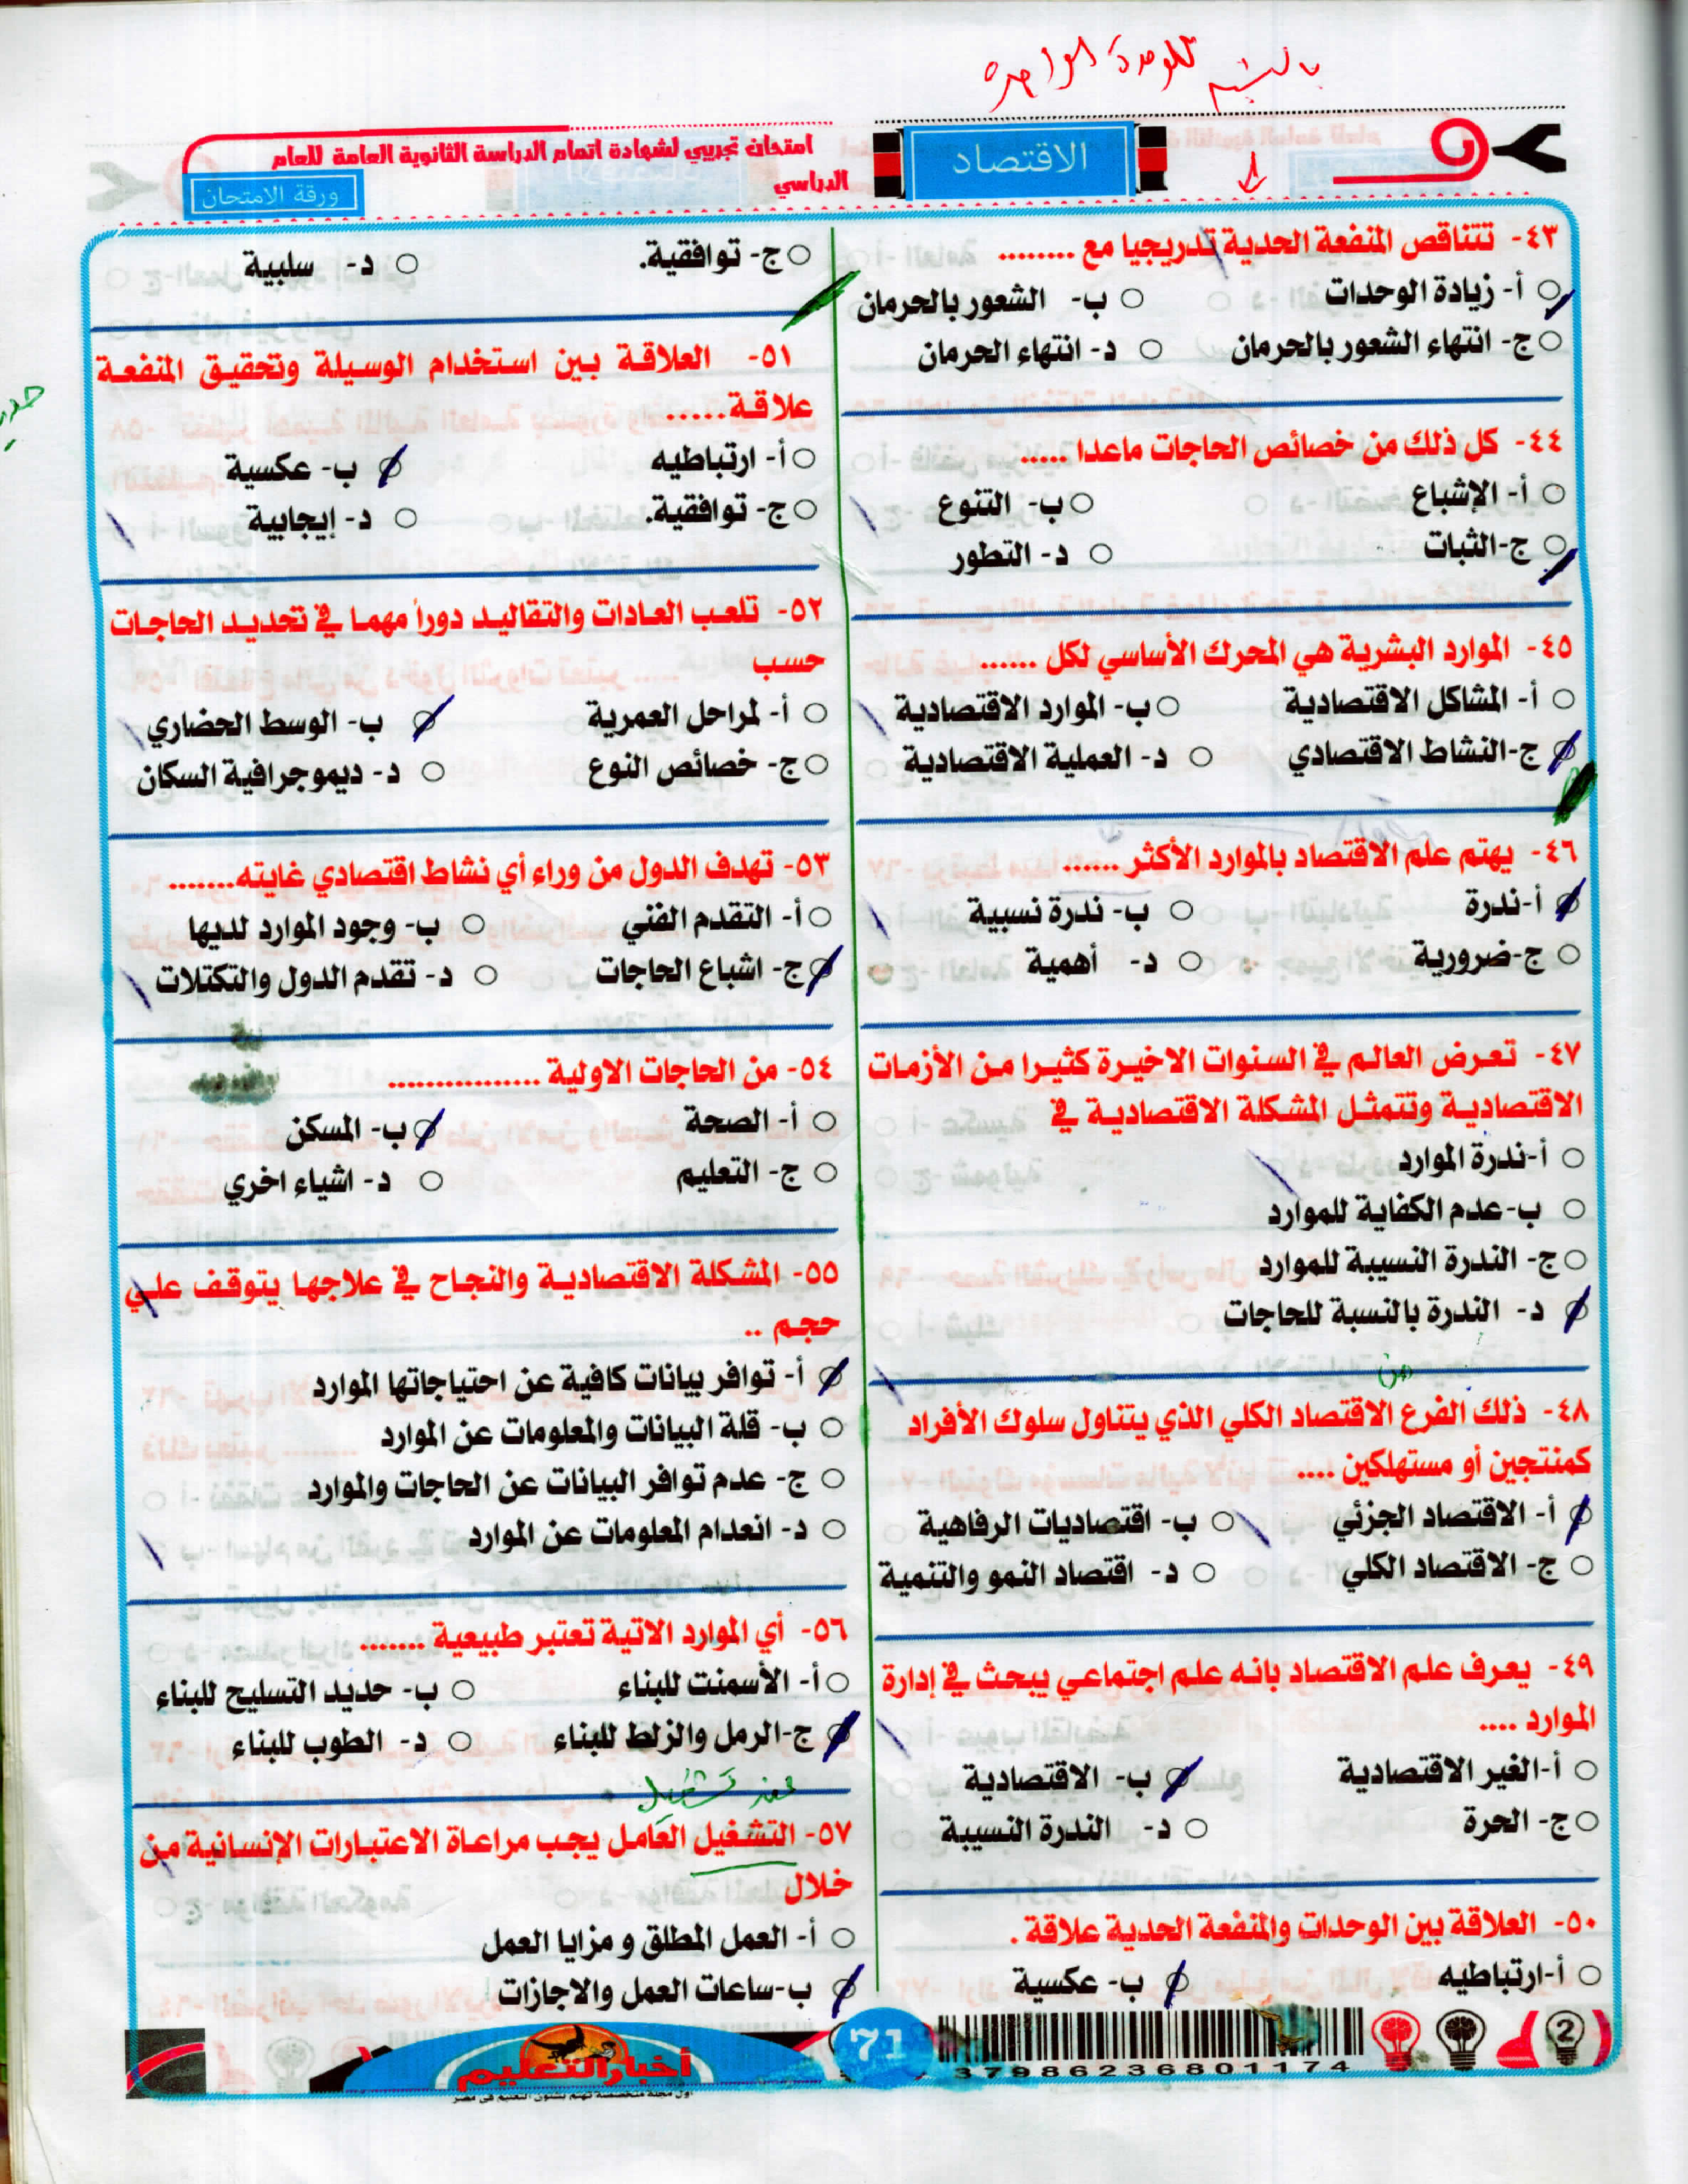 للوحدة الواحدة
الاقتصاد
امتحان تجريبي لشهادة اتمام الدراسة الثانوية العامة للعام
الدراسي
ورقة الامتحان
٤٣- تتناقص المنفعة الحدية تدريجيا مع ........
أ- زيادة الوحدات
ب- الشعور بالحرمان
ج- انتهاء الشعور بالحرمان
د- انتهاء الحرمان
٤٤- كل ذلك من خصائص الحاجات ماعدا .....
أ- الإشباع
ب- التنوع
ج-الثبات
د- التطور
٤٥- الموارد البشرية هي المحرك الأساسي لكل ......
أ- المشاكل الاقتصادية
ب- الموارد الاقتصادية
ج-النشاط الاقتصادي
د- العملية الاقتصادية
٤٦- يهتم علم الاقتصاد بالموارد الأكثر ......
أ-ندرة
ب- ندرة نسبية
ج-ضرورية
د- أهمية
٤٧- تعرض العالم في السنوات الاخيرة كثيرا من الأزمات
الاقتصادية وتتمثل المشكلة الاقتصادية في
أ-ندرة الموارد
ب-عدم الكفاية للموارد
ج- الندرة النسيبة للموارد
د- الندرة بالنسبة للحاجات
من
٤٨- ذلك الفرع الاقتصاد الكلي الذي يتناول سلوك الأفراد
كمنتجين أو مستهلكين ....
أ- الاقتصاد الجزئي
ب- اقتصاديات الرفاهية
ج- الاقتصاد الكلي
د- اقتصاد النمو والتنمية
٤٩- يعرف علم الاقتصاد بانه علم اجتماعي يبحث في إدارة
الموارد ....
أ-الغير الاقتصادية
ب- الاقتصادية
ج- الحرة
د- الندرة النسيبة
٥٠- العلاقة بين الوحدات والمنفعة الحدية علاقة .
أ-ارتباطيه
ب- عكسية
ج- توافقية.
د- سلبية
٥١- العلاقة بين استخدام الوسيلة وتحقيق المنفعة
علاقة......
أ- ارتباطيه
ب- عكسية
ج- توافقية.
د- إيجابية
٥٢- تلعب العادات والتقاليد دوراً مهما في تحديد الحاجات
حسب
أ- لمراحل العمرية
ب- الوسط الحضاري
ج- خصائص النوع
د- ديموجرافية السكان
٥٣- تهدف الدول من وراء أي نشاط اقتصادي غايته.......
أ- التقدم الفني
ب- وجود الموارد لديها
ج- اشباع الحاجات
د- تقدم الدول والتكتلات
٥٤- من الحاجات الاولية ................
أ- الصحة
ب- المسكن
ج- التعليم
د- اشياء اخري
٥٥- المشكلة الاقتصادية والنجاح في علاجها يتوقف علي
حجم ..
أ- توافر بيانات كافية عن احتياجاتها الموارد
ب- قلة البيانات والمعلومات عن الموارد
ج- عدم توافر البيانات عن الحاجات والموارد
د- انعدام المعلومات عن الموارد
٥٦- أي الموارد الاتية تعتبر طبيعية .......
أ- الأسمنت للبناء
ب- حديد التسليح للبناء
ج-الرمل والزلط للبناء
د- الطوب للبناء
عند تشغيل
٥٧- التشغيل العامل يجب مراعاة الاعتبارات الإنسانية من
خلال
أ- العمل المطلق و مزايا العمل
ب-ساعات العمل والاجازات
2
37986236801174
71
أخبار التعليم
اول مجلة متخصصة تهتم بشئون التعليم في مصر